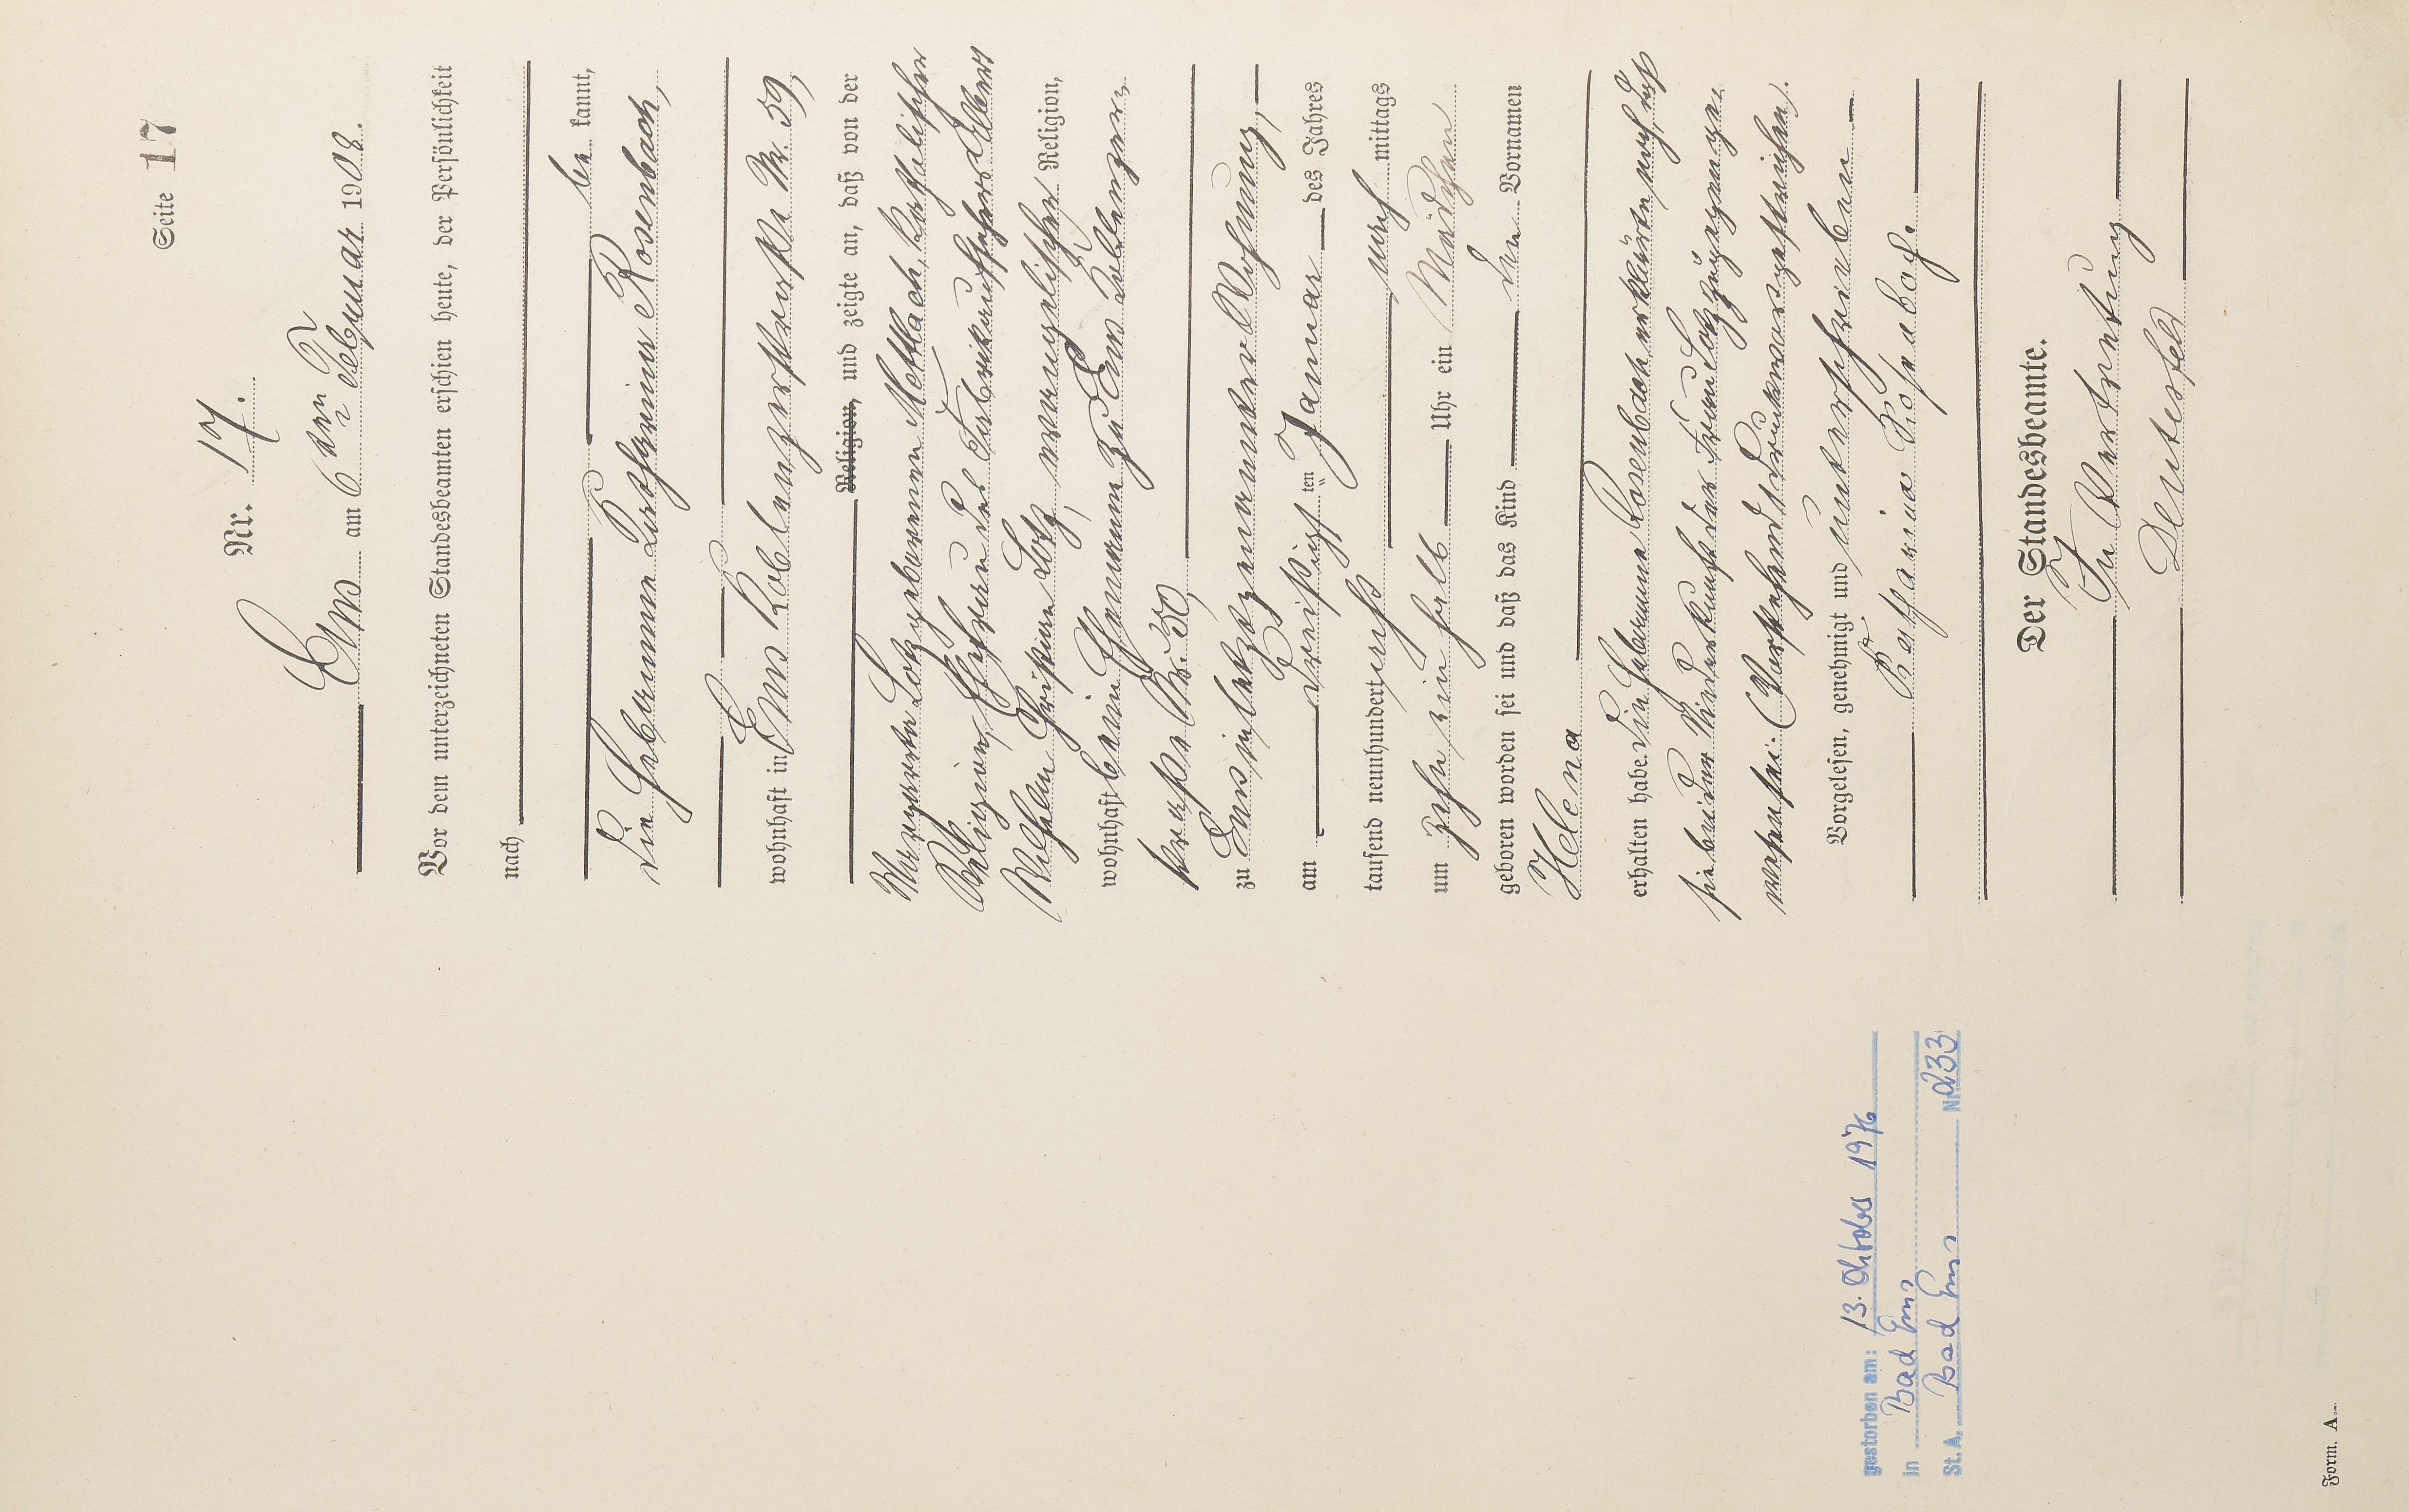 Seite 17
Nr. 17.
Ems am 6ten Februar 1908.
Vor dem unterzeichneten Standesbeamten erschien heute, der Persönlichkeit
nach
be kannt,
die Hebamme Katharina Rosenbach,
wohnhaft in Ems Koblenzerstraße Nr. 59,
Religion, und zeigte an, daß von der
Margareta Lotz geborenen Mettlach, katholischer
Religion, Ehefrau des Albert
Wilhelm Christian Lotz, evangelischer Religion,
wohnhaft bei ihrem Ehemann zu Ems Koblenzer-
straße Nr. 50,
zu Ems in letztgenannter Wohnung,
am dreißigsten Januar des Jahres
tausend neunhundert acht nach mittags
um zehn ein halb Uhr ein Mädchen
geboren worden sei und daß das Kind den Vornamen
Helena
erhalten habe. Die Hebamme Rosenbach erklärte noch, daß
sie bei der Niederkunft der Frau Lotz zugegen ge-
wesen sei. (Vorstehend Druckworte gestrichen).
Vorgelesen, genehmigt und unterschrieben
Katharina Rosenbach.
Der Standesbeamte.
In Vertretung
Deusterfeld
gestorben am: 13. Oktober 1976
in Bad Ems
St. A. Bad Ems Nr. 233
Form. A.